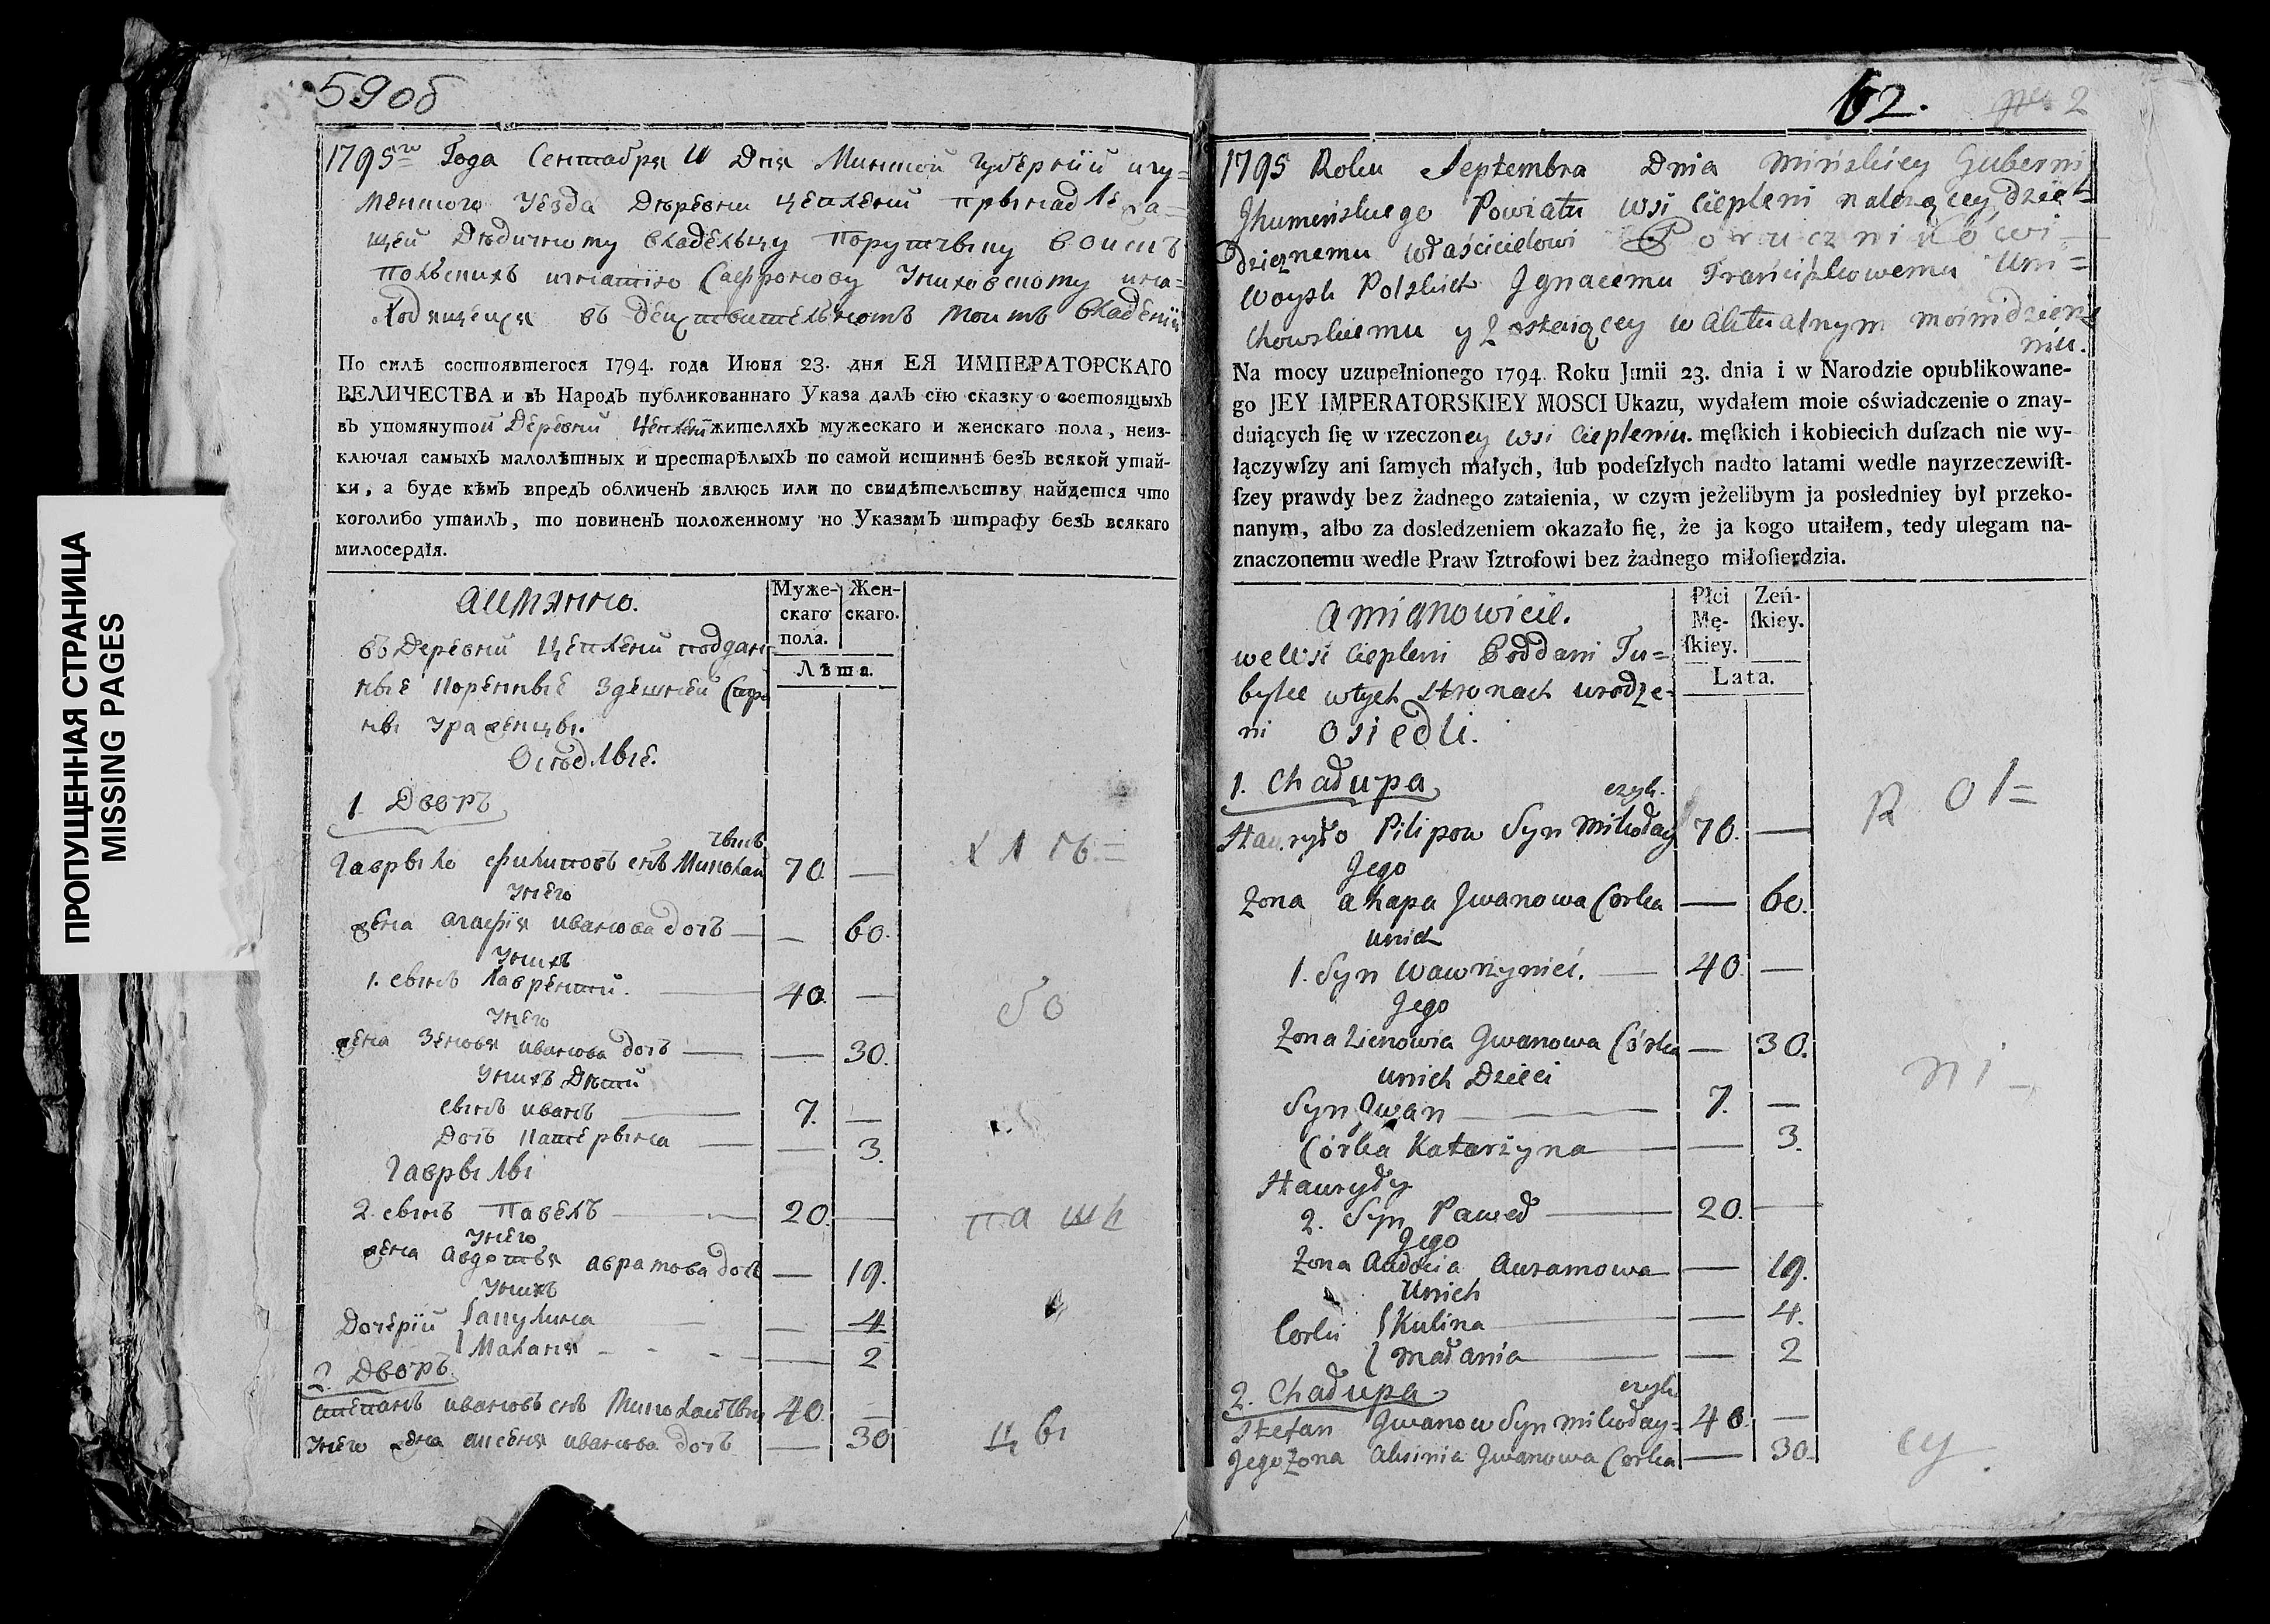 ПРОПУЩЕННАЯ СТРАНИЦА
MISSING PAGES
59об
1795го Года Сентября Дня Минской Губернїи игу=
менского Уезда Деревни Цеплени прынадлежа=
щей Дедичному владельцу Поручыку воискъ
польскихъ игнатїю Унихо вскому ина=
ходящейся въ владенїи
По силѣ состоявшегося 1794. года Июня 23. дня ЕЯ ИМПЕРАТОРСКАГО
ВЕЛИЧЕСТВА и въ Народъ публикованнаго Указа далъ сїю сказку о состоящыхъ
въ упомянутой Деревни Цеплени жителяхъ мужескаго и женскаго пола, неиз-
ключая самыхъ малолѣтных и престарѣлыхъ по самой истиннѣ безъ всякой утай-
ки, а буде кѣмъ впредъ обличенъ явлюсь или по свидѣтельству найдется что
коголибо утаилъ, то повиненъ положенному по Указамъ штрафу безъ всякаго
милосердїя.
аимянно.
Муже-
скаго
пола.
Жен-
скаго.
Лѣта.
въ Деревни Цеплени поддан
ные коренные Здешней Старо
ны Уроженцы.
Оседлые.
1. Дворъ
чыкъ
Гаврыло Филиповъ снъ Миколай 70. —
Унего
жена Агафїя иванова дочъ — — 60.
Унихъ
1. сынъ Лаврентий. — 40. —
Унего
жена Зеновя иванова дочъ — — 30.
Унихъ Дети
сынъ иванъ — 7. —
Дочъ Катерына — — 3.
Гаврылы
2. сынъ Павелъ — 20. —
Унего
жена Авдотья аврамова дочъ — 19.
Унихъ
Дочерїи {акулина — — 4
{Маланя — — 2
2. Дворъ
степанъ ивановъ снъ Миколайчык 40. —
Унего жена аксеня иванова дочъ — 30
па шн
цы
62.
2
1795 Roku Septembra Dnia Mińskiey Guberni
Jhumeńskiego Powiatu wsi Ciepleni należącey dzie=
dzicznemu Właścicielowi Porucznikowi
Woysk Polskich Jgnacemu Franciszkowemu Uni=
chowskiemu y zostaiącey w aktualnym moim dzierże
niu.
Na mocy uzupełnionego 1794. Roku Junii 23. dnia i w Narodzie opublikowane-
go JEY IMPERATORSKIEY MOSCI Ukazu, wydałem moie oświadczenie o znay-
duiących ſię w rzeczoney wsi Ciepleniu. męſkich i kobiecich duſzach nie wy-
łączywſzy ani ſamych małych, lub podeſzłych nadto latami wedle nayrzeczewiſt-
ſzey prawdy bez żadnego zataienia, w czym jeżelibym ja posledniey był przeko-
nanym, albo za dosledzeniem okazało ſię, że ja kogo utaiłem, tedy ulegam na-
znaczonemu wedle Praw ſztrofowi bez żadnego miłoſierdzia.
amianowicie.
Płci
Mę-
ſkiey.
Zeń-
ſkiey.
Lata.
we Wsi Ciepleni Poddani Tu=
bylce w tych stronach urodze-
ni osiedli.
1. Chałupa
czyk.
Hauryło Pilipow Syn Mikołay 70. —
Jego
Zona ahapa Jwanowa Corka — 60.
unich
1. Syn Wawrzyniec. — 40. —
Jego
Zona Zienowia Jwanowa Córka — 30.
unich Dzieci
Syn Jwan — 7. —
Córka Katarżyna — — 3.
Hauryły
2. Syn Paweł — 20. —
Jego
Zona Audocia Auramowa — — 19.
Unich
Corki {Kulina — — 4.
{Małania — — 2
2. Chałupa
czyk
Stefan Jwanow Syn Mikołay= 40. —
Jego Zona Aksinia Jwanowa Corka — 30.
R ol=
ni=
cy